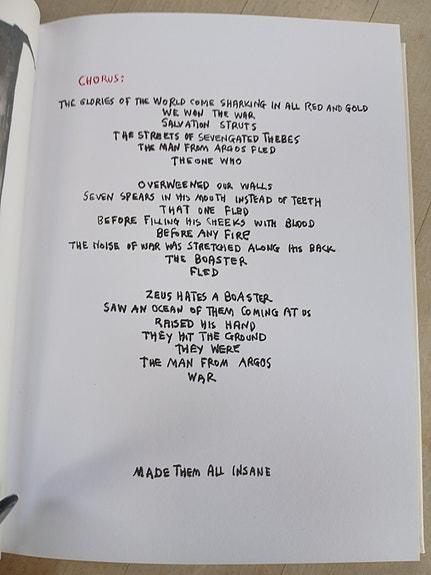 CHORUS:
THE GLORIES OF THE WORLD COME SHARKING IN ALL RED AND GOLD
WE WON THE WAR
SALVATION STRUTS
THE STREETS OF SEVENGATED THEBES
THE MAN FROM ARGOS FLED
THE ONE WHO
OVERWEENED OUR WALLS
SEVEN SPEARS IN HIS MOUTH INSTEAD OF TEETH
THAT ONE FLED
BEFORE FILLING HIS CHEEKS WITH BLOOD
BEFORE ANY FIRE
THE NOISE OF WAR WAS STRETCHED ALONG HIS BACK
THE BOASTER
FLED
ZEUS HATES A BOASTER
SAW AN OCEAN OF THEM COMING AT US
RAISED HIS HAND
THEY HIT THE GROUND
THEY WERE
THE MAN FROM ARGOS
WAR
MADE THEM ALL INSANE